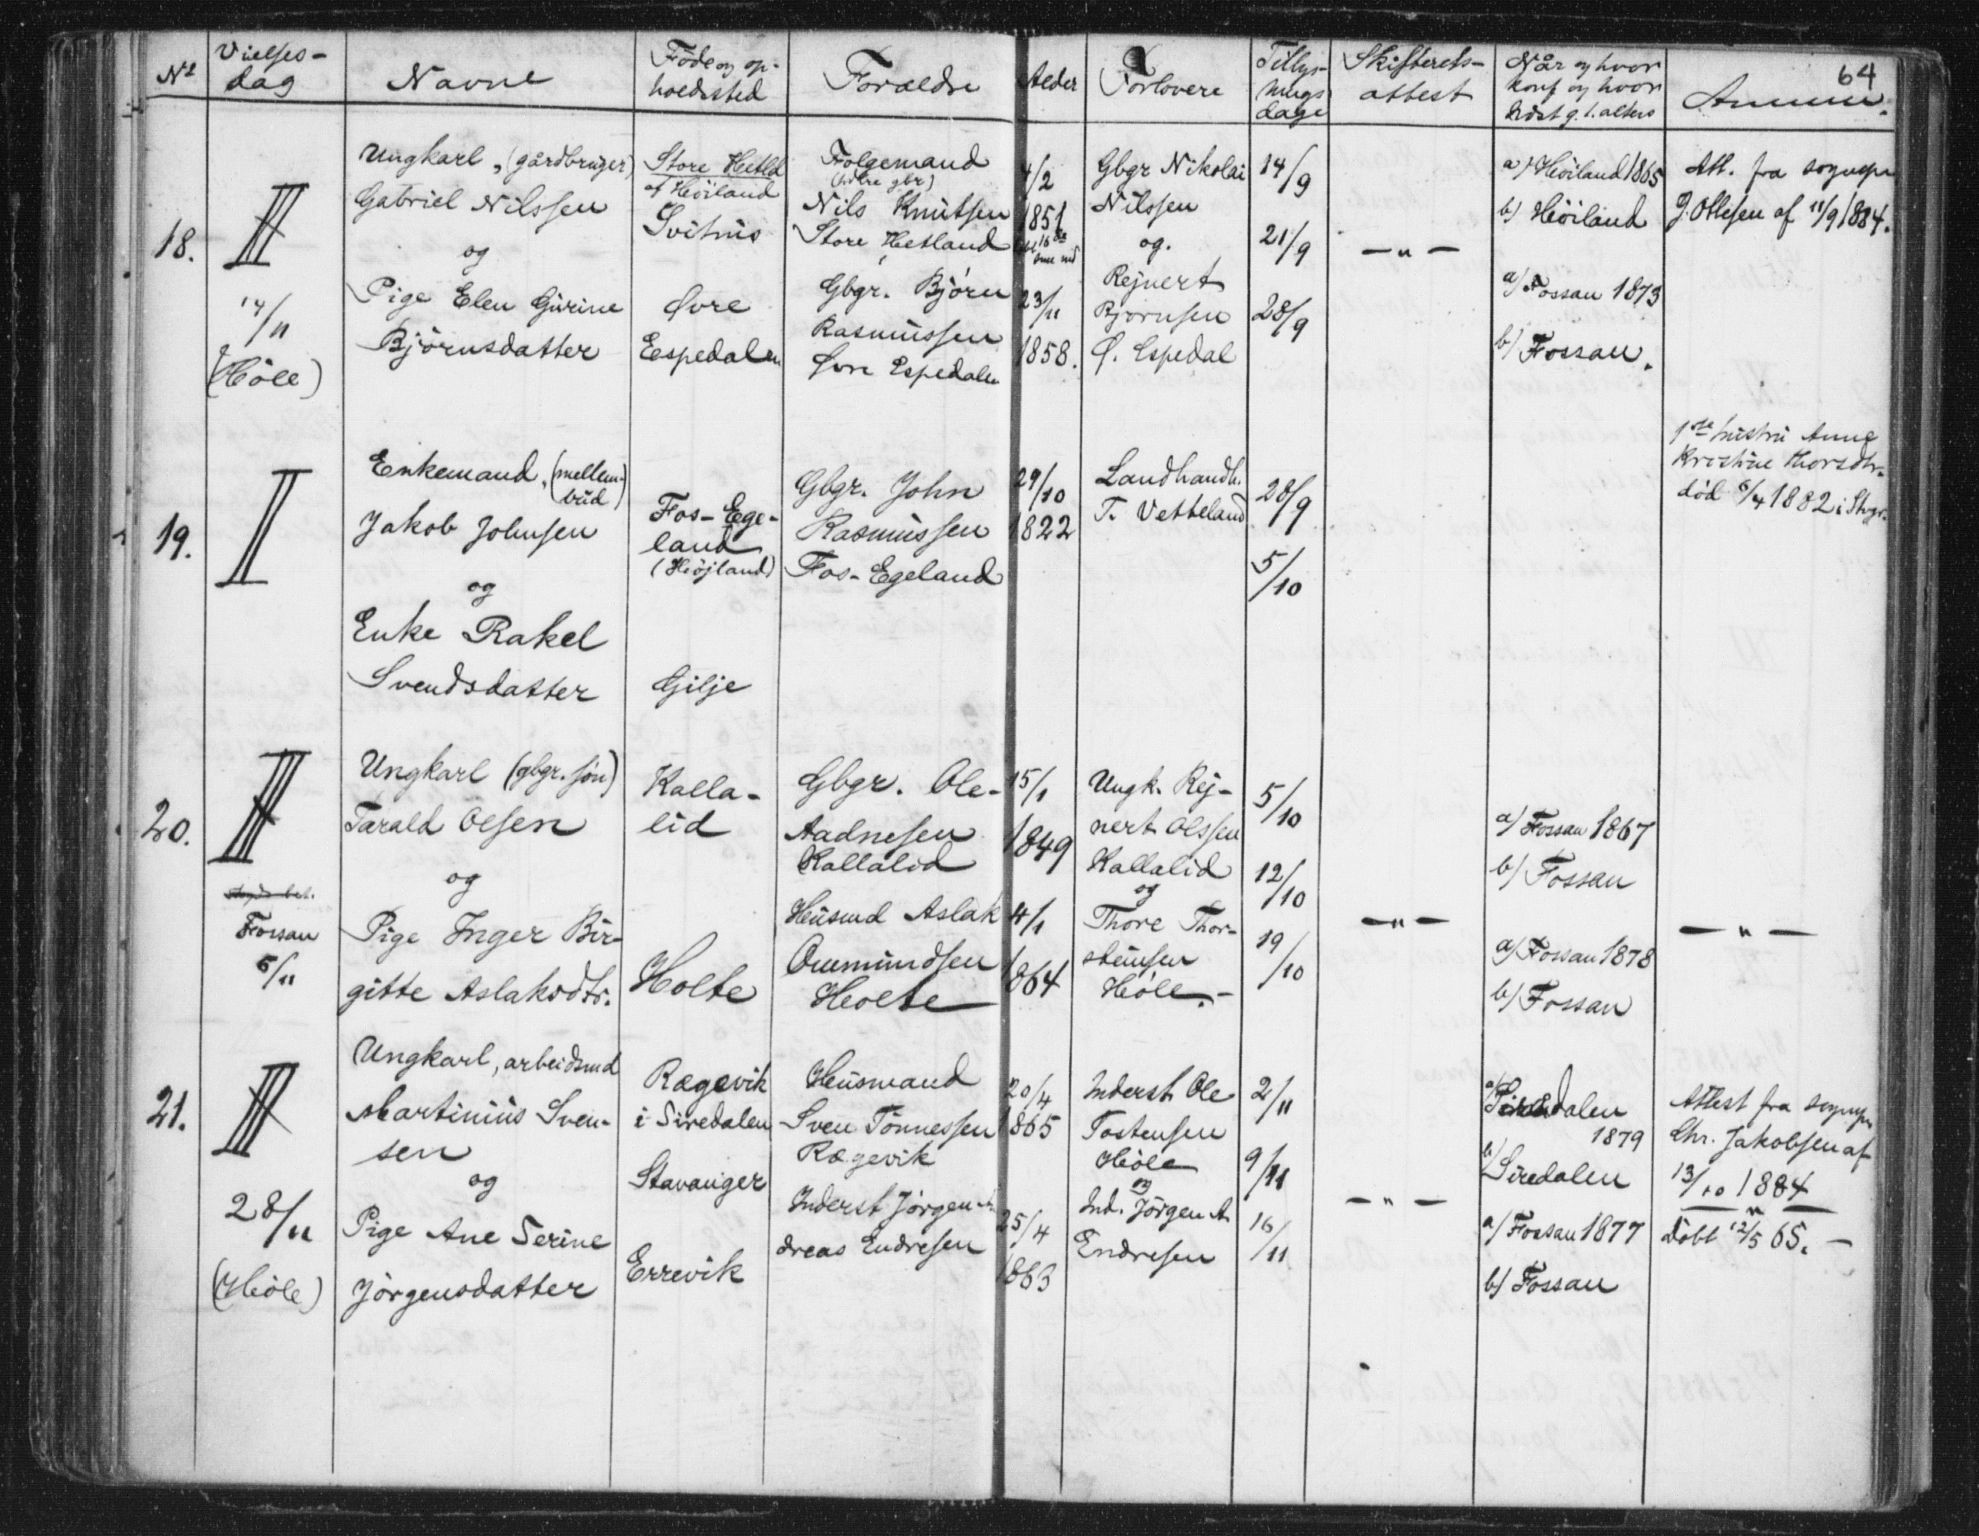 64
Nº
Vielses-
dag
Navne
Föde og op-
holdssted
Forældre
Alder
Forlovere
Tillys-
nings
dage
Skifterets-
attest
Når og hvor
konf og hvor
sidst g. t. alters
Anmm.
18.
III
14/11
(Höle)
Ungkarl, (gårdbruger)
Gabriel Nilssen
og
Pige Elen Gurine
Björnsdatter
Store Hetld
af Höiland
Svihus
Øvre
Eespedalen
Folgemand
(hdre gbr)
Nils Knutsen
Store Hetland
Gbgr. Björn
Rasmussen
Øvre Espedalen
4/2
1851
23/11
1858.
Gbgr Nikolai
Nilssen
og.
Rejnert
Bjørnsen
Ø. Espedal
14/9
21/9
28/9
— „ —
a) Höiland 1865
b) Höiland
a) Fossan 1873
b) Fossan.
Att. fra sognepr
J. Ottesen af 11/9 1884.
19.
II
Enkemand, (mellem-
bud)
Jakob Johnsen
og
Enke Rakel
Svendsdatter
Fos-Ege-
land
(Höjland)
Gilje
Gbgr. John
Rasmussen
Fos-Egeland
29/10
1822
Landhandl.
T. Vetteland
28/9
5/10
1ste hustru Anne
Kristine Thorsdtr.
död 6/4 1882 i Stvgr.
20.
III
Fossan
5/11
Ungkarl (gbgr. sön)
Tarald Olsen
og
Pige Inger Bir-
gitte Aslaksdtr.
Kalla-
lid
Holte
Gbgr. Ole
Aadnesen
Kallalid
Husmd Aslak
Omundsen
Holte
15/1
1849
4/1
1864
Ungk. Rej-
nert Olssen
Kallalid
og
Thore Thor-
steinsen
Höle. -
5/10
12/10
19/10
— „ —
a) Fossan 1867
b) Fossan
a) Fossan 1878
b) Fossan
— „ —
21.
III
28/11
(Höle)
Ungkarl, arbeidsmd
Martinius Sven-
sen
og
Pige Ane Serine
Jörgensdatter
Rægevik
i Siredalen
Stavanger
Errevik
Husmand
Sven Tönnessen
Rægevik
Inderst Jörgen An-
dreas Endresen
20/4
1865
25/4
1863
Inderst Ole
Tostensen
Höle
og
Ind. Jörgen A
Endresen
2/11
9/11
16/11
— „ —
a) Siredalen
1879
b) Siredalen
a) Fossan 1877
b) Fossan
Attest fra sognepr
Chr. Jakobsen af
13/10 1884
— „ —
döbt 12/5 65. —